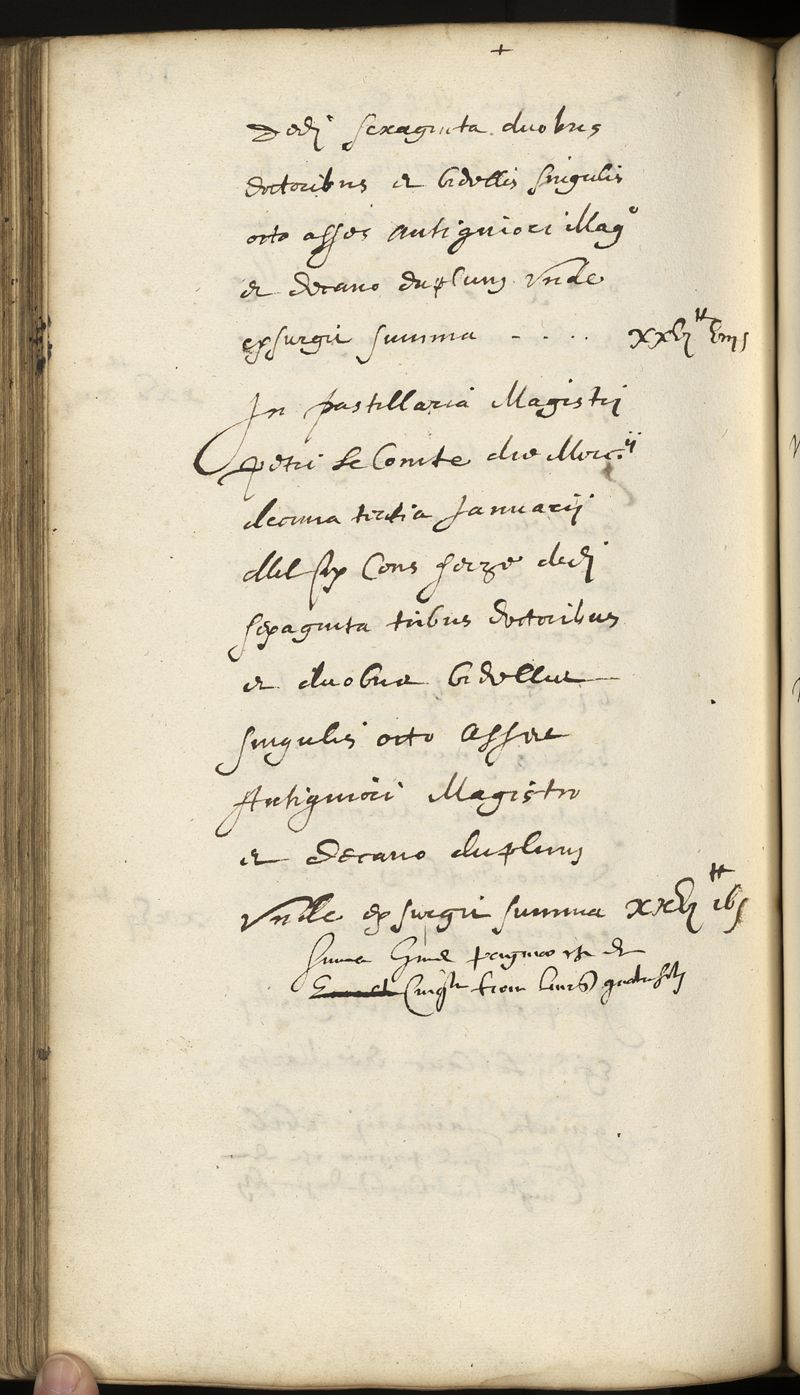 +
Dedi sexaginta duobus
doctoribus et bidellis singulis
octo asses Antiquiori Mag°
et decano duplum Vnde
exsurgit summa - . . .
In pastillaria Magistri
petri Le Comte die Merc.ii
decima tertia Januarij
Mil six Cens seize dedi
sexaginta tribus doctoribus
et duobus bidellis
singulis octo asses
Antiquiori Magistro
et decano duplum
Vnde exsurgit summa